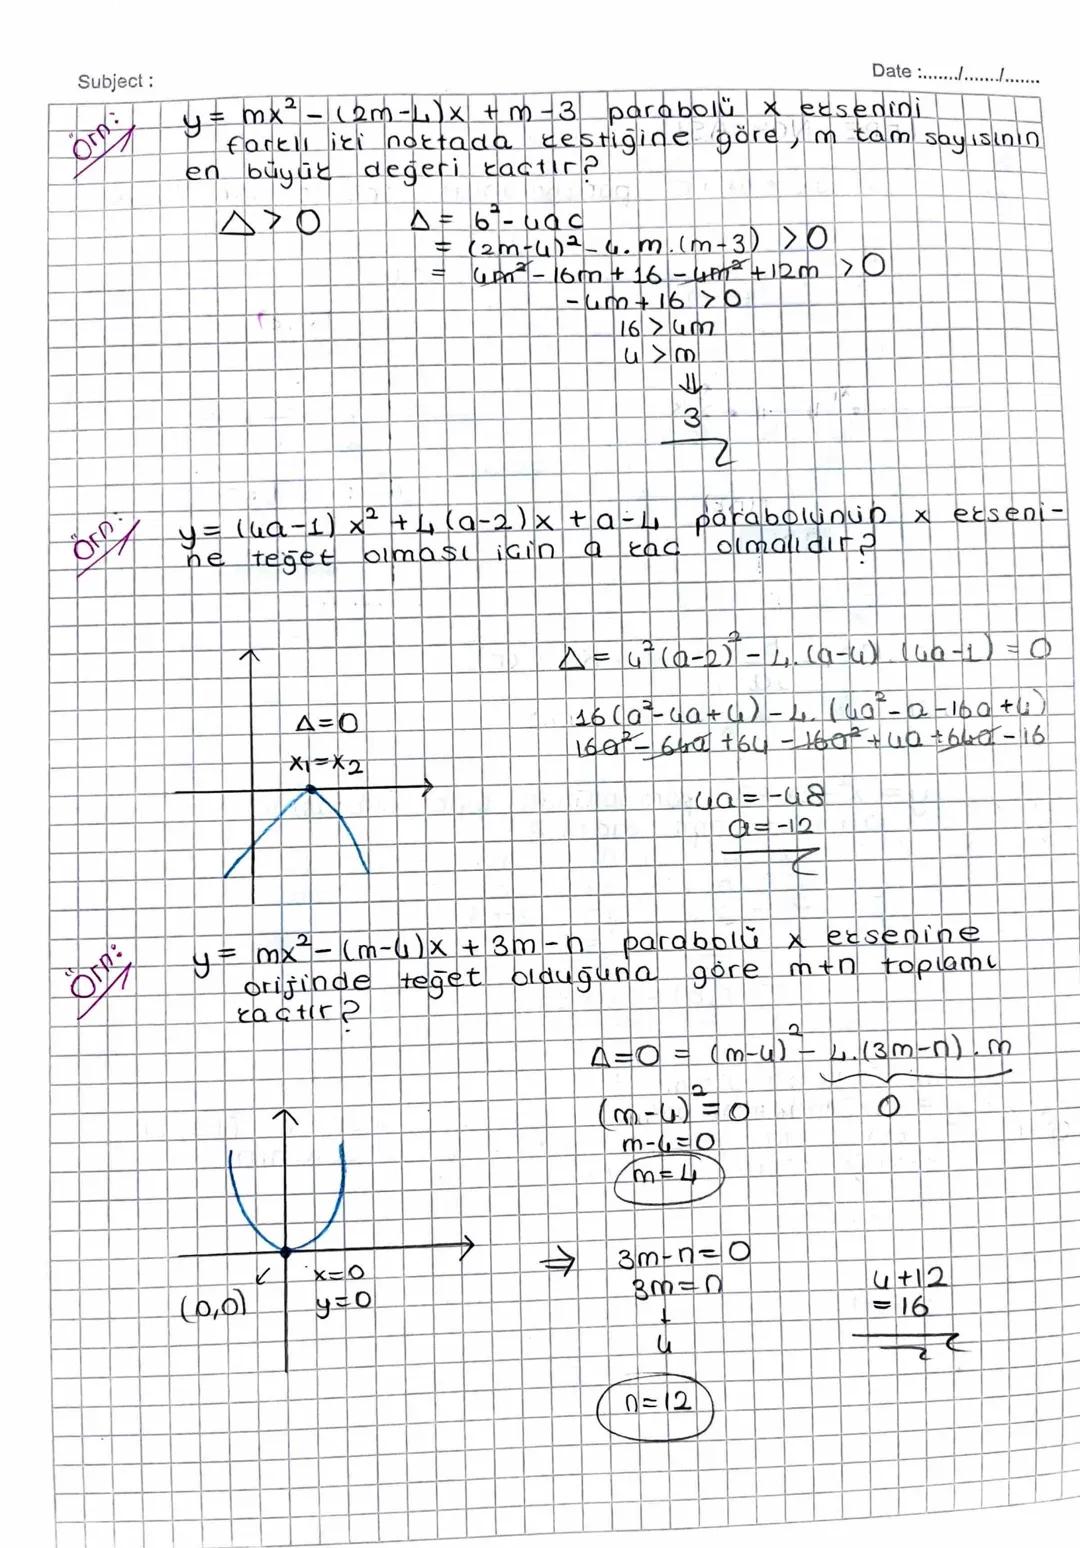 Subject :
Date :......./......./.......
Örn:
y = mx² - (2m-4)x + m-3 parabolü x eksenini
farklı iki noktada kestiğine göre, m tam sayısının
en büyük değeri kaçtır?
Δ > 0
Δ = b² - 4ac
= (2m-4)² - 4.m.(m-3) > 0
= 4m² - 16m + 16 - 4m² + 12m > 0
-4m + 16 > 0
16 > 4m
4 > m
⇓
3
Örn:
y = (4a-1) x² + 4 (a-2)x + a-4 parabolünün x ekseni-
ne teğet olması için a kaç olmalıdır?
Δ = 4²(a-2)² - 4.(a-4).(4a-1) = 0
16(a²-4a+4) - 4.(4a²-a-16a+4)
16a² - 64a + 64 - 16a² + 4a + 64a - 16
4a = -48
a = -12
Δ=0
x₁=x₂
Örn:
y = mx² - (m-4)x + 3m-n parabolü x eksenine
orijinde teğet olduğuna göre m+n toplamı
kaçtır?
Δ=0 = (m-4)² - 4.(3m-n).m
(m-4)² = 0
0
m-4=0
m=4
x=0
y=0
(0,0)
⇒ 3m-n=0
3m=n
↓
4
n=12
4+12
=16